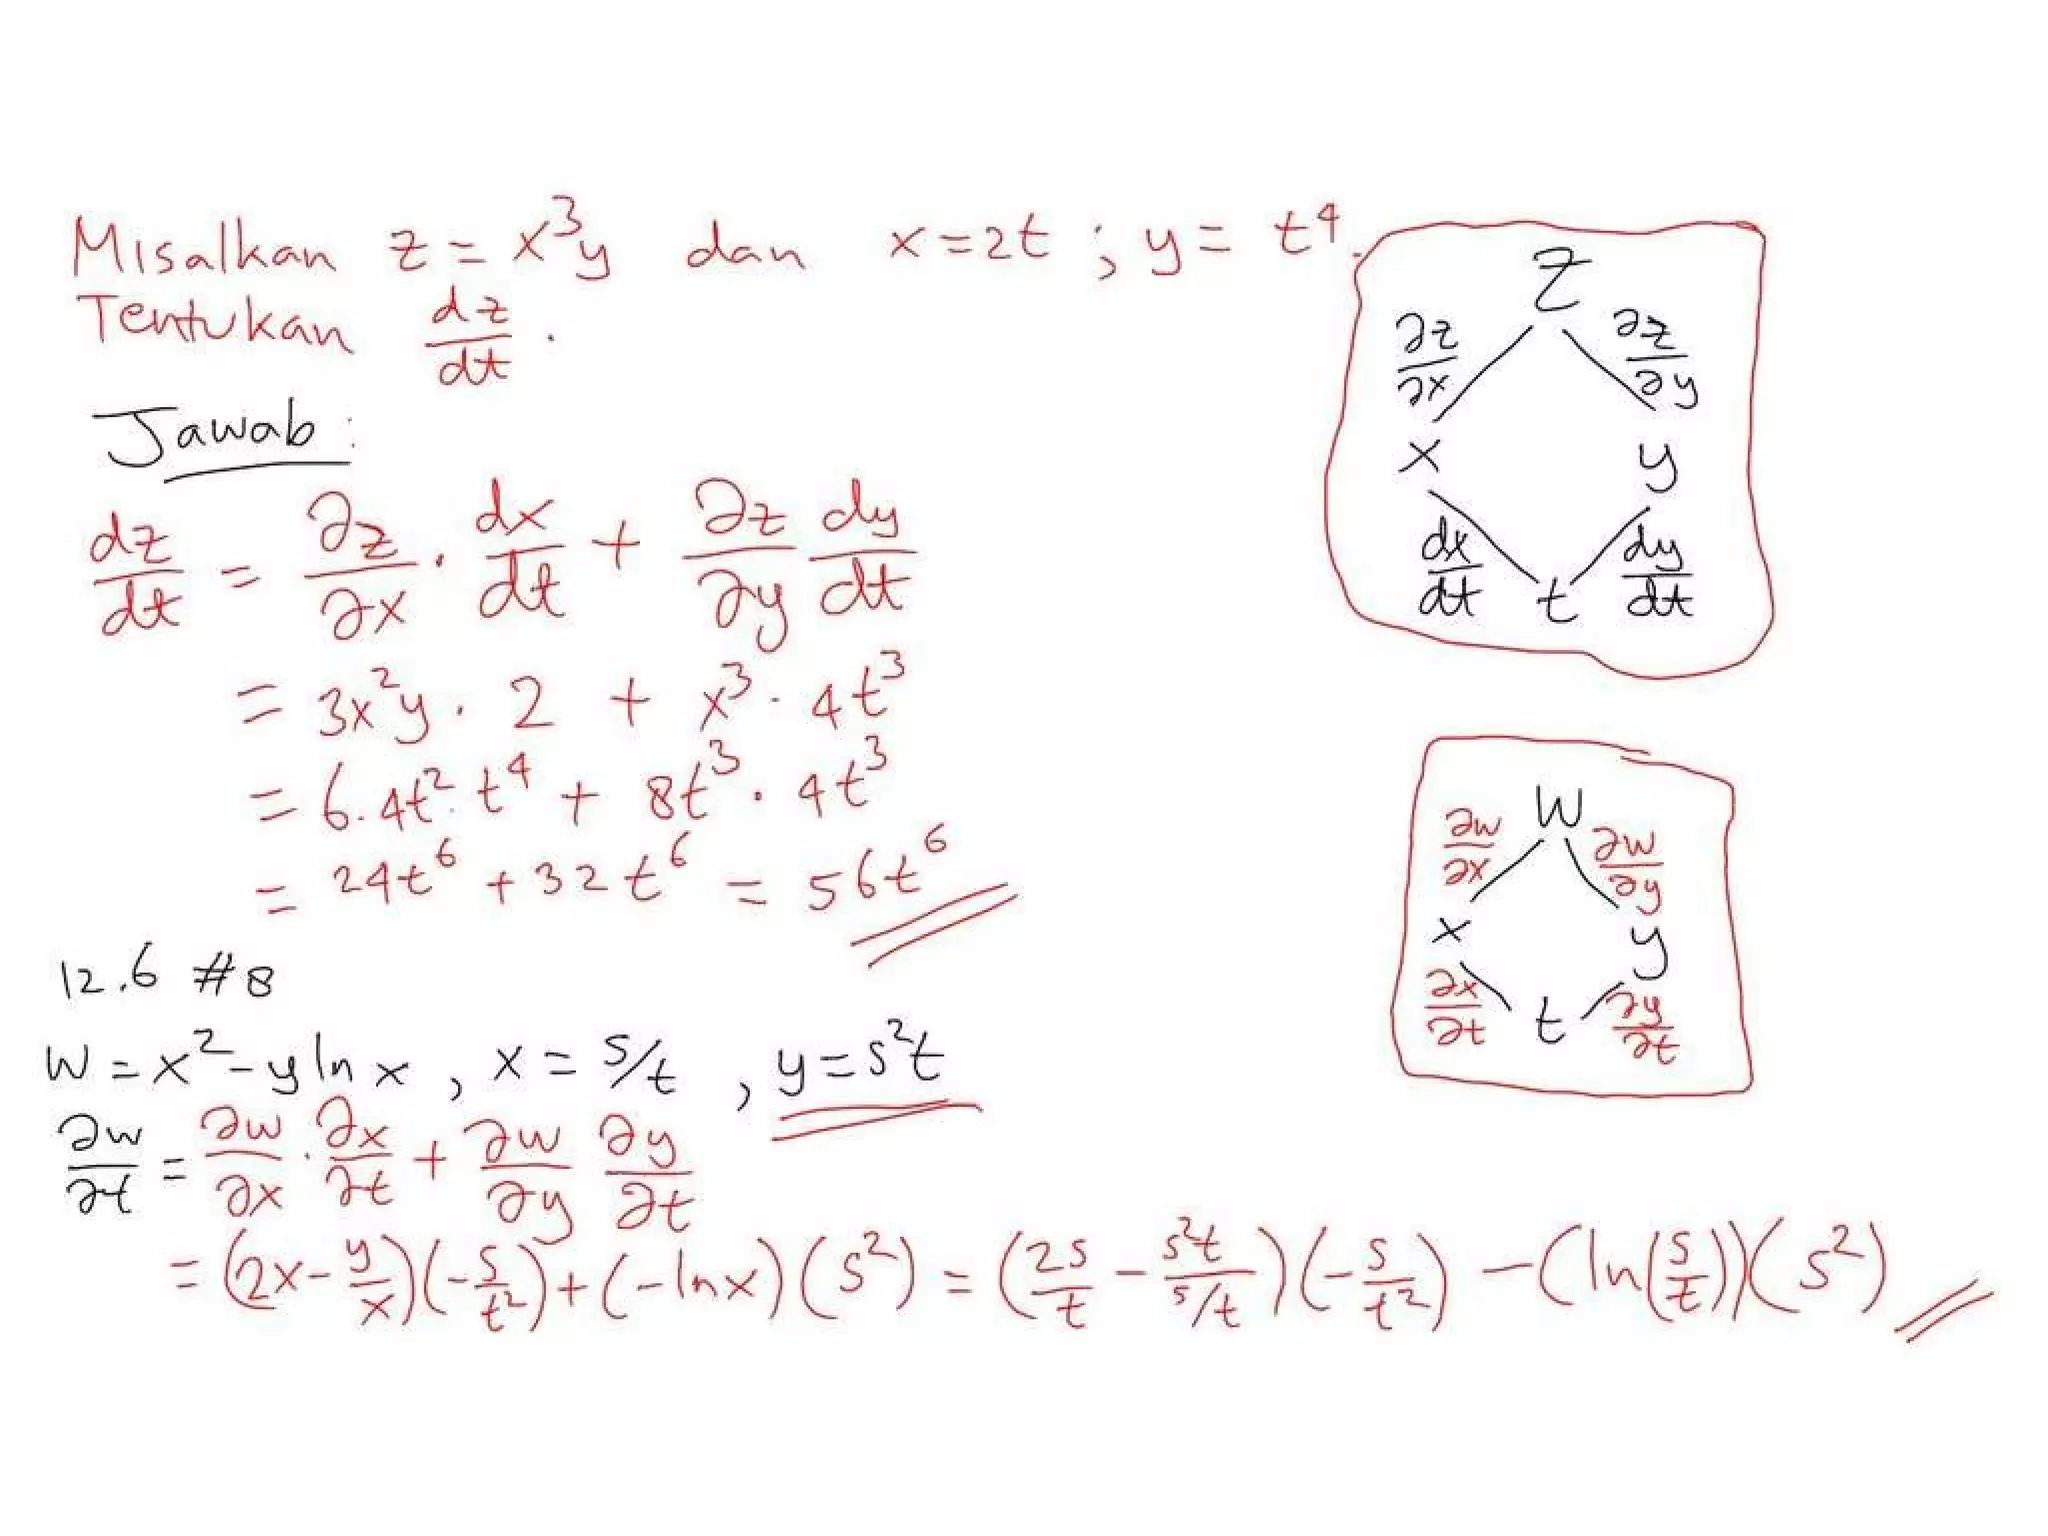 Misalkan z = x³y dan x = 2t ; y = t⁴.
Tentukan dz/dt .
Jawab :
dz/dt = ∂z/∂x · dx/dt + ∂z/∂y dy/dt
= 3x²y · 2 + x³ · 4t³
= 6 · 4t² · t⁴ + 8t³ · 4t³
= 24t⁶ + 32t⁶ = 56t⁶
Z
∂z/∂x ∂z/∂y
x y
dx/dt t dy/dt
12.6 #8
W = x² - y ln x , x = s/t , y = s²t
∂w/∂t = ∂w/∂x · ∂x/∂t + ∂w/∂y ∂y/∂t
= (2x - y/x)(-s/t²) + (-ln x)(s²) = (2s/t - s²t/s/t)(-s/t²) - (ln(s/t))(s²)
W
∂w/∂x ∂w/∂y
x y
∂x/∂t t ∂y/∂t